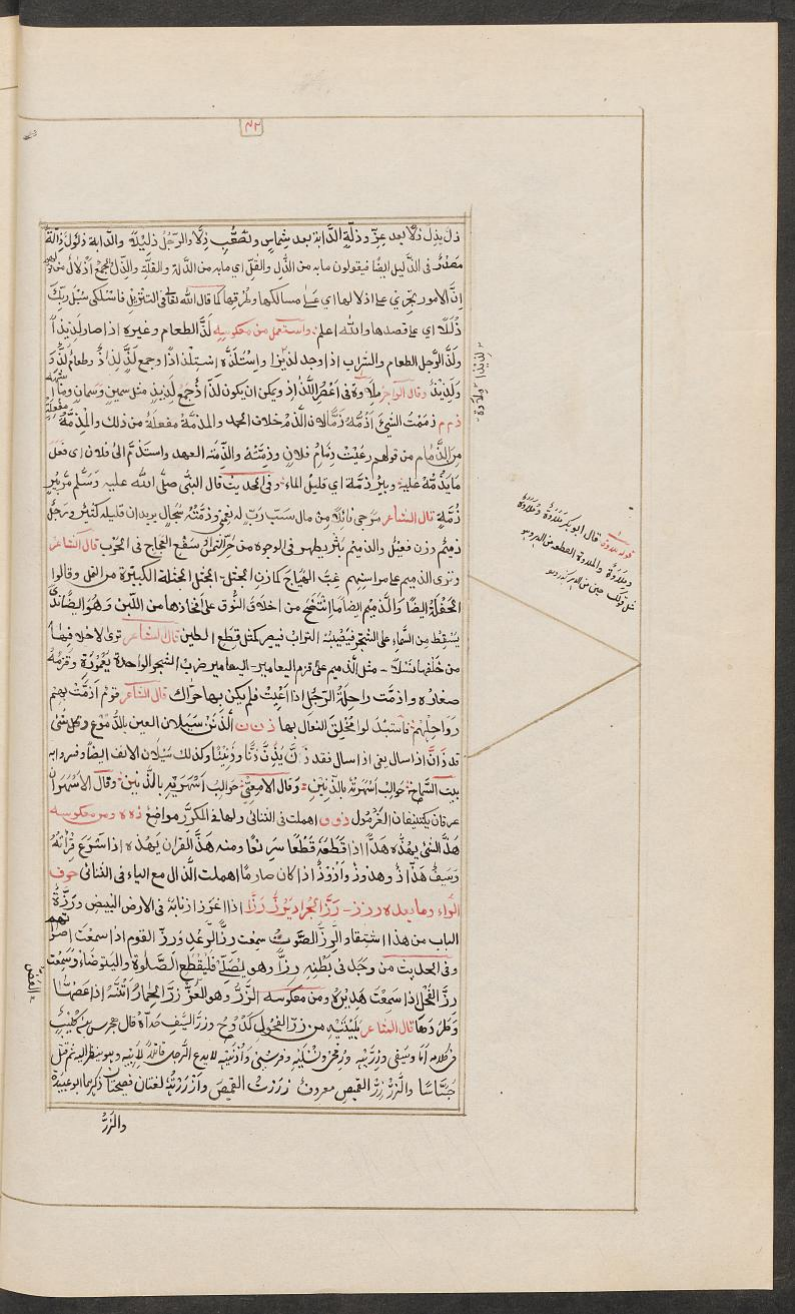 ٤٢
ذل يذل ذلا بعد عزّ وذلّة الدّابة بعد شماس وتصعّب ذِلّا والرجُل ذليل والدابة ذلول
مصدر فى الذّليل ايضًا فيقولون مابه من الذُّل والقُلّ اى مابه من الذلة والقلّة والذِّلّ اذلال
اِنّ الامور تجرى على اذلالها اى على مسالكها وطرقها كما قال الله تعالى فى التنزيل فاسلكى سُبُل ربّك
ذُلُلًا اى على قصدها والله اعلم واستعمل من معكوسه لذّ الطعام وغيره اذا صار لذيذا
ولذّ الرّجل الطعام والشراب اذا وجد لذيذا واستلذّه استلذاذًا وجمع لَذّ لِذاذ وطعام لَذّ
ولذيذ وقال الراجز ملاوة فى اعصُر اللّذاذ ويمكن ان يكون لذاذ جمع لذيذ مثل سمين وسمان
ذ م م ذممت الشئ اذُمّه ذمّا والذّمّ خلاف الحمد والمذمّة مفعلة من ذلك والمِذمّة
من الذّمام من قولهم رعيت ذمام فلان وذمّته والذّمّة العهد واستذمّ الىّ فلان اى فعل
ما يذمّه عليه وبئر ذمّة اى قليل الماء وفى الحديث قال النبى صلّى الله عليه وسلّم مرّ ببئر
ذمّة قال الشاعر نائلا من مال سيب ربّ له نعمى وذمّته سجال يريد ان قليله كثير ورجل
ذميم وزن فعيل والذميم بثر يظهر فى الوجوه من حرّ الشمس او سفع العجاج فى الحرب قال الشاعر
وترى الذميم على مراسنهم غبّ الهياج كمازن الجثل الجثل الجثلة الكبيرة من النمل وقالوا
الجفلة ايضا والذميم ايضا ما انتضح من اخلاف النوق على افخاذها من اللبن وهو ايضا ندًى
يسقط من السماء على الشجر فيصيبه التراب فيصير كمثل قطع الطين قال الشاعر ترى لاخلافها
من خلفها نسلا مثل الذميم على قزم اليعامير اليعامير ضرب من الشجر الواحدة يعمورة وقزمه
صغاره واذمّت راحلة الرجل اذا اعيت فلم يكن بها حراك قال الشاعر قوم اذمّت بهم
رواحلهم فاستبدلوا مخلق النعال بها ذ ن ن الذّنن سيلان العين بالدموع وكل شئ
اذا سال فقد ذنّ يذنّ ذنّا وذنينا وكذلك سيلان الانف ايضا وفسر وابه
بيت الشّماخ حوالب اسهرته بالذنين وقال الاصمعى حوالب اسهريه بالذنين وقال الاسهران
عرقان يكتنفان الغرمول ذ و و اهملت فى الثنائى ولها فى المكرّر مواضع ذ ه ه ومن معكوسه
هذّ الشئ يهذّه هذّا اذا قطعه قطعا سريعا ومنه هذّ القران يهذّه اذا اسرع قراته
وسيف هذّاذ وهذوذ واذوذ اذا كان صارما اهملت الذال مع الياء فى الثنائى حرف
الراء وما بعده ر ز ز رزّ الجراد يرُزّ رزّا اذا غرز اذنابه فى الارض ليبيض ورزّة
الباب من هذا اشتقاقه والرزّ الصوت سمعت رزّ الرعد ورزّ القوم اذا سمعت اصواتهم
وفى الحديث من وجد فى بطنه رزّا وهو يصلّى فليقطع الصلوة وليتوضاء وسمعت
رزّ الفحل اذا سمعت هديره ومن معكوسه الزّرّ وهو العضّ زرّ الحمار اتنه اذا عضّها
وطردها قال الشاعر بليتيه من زرّ الفحول كدوح وزرّ السيف حدّاه قال هجرس بن كليب
فى كلامه اما وسيفى وزرّيه ورمحى ونصليه وفرسى واذنيه لا يدع الرجل قاتل ابيه وهو ينظر اليه ثم قتل
جسّاسا والزّرّ زرّ القميص معروف زررت القميص وازررته لغتان فصيحتان ذكرهما ابو عبيدة
والزرّ
لذيذا
ملاوة
قوله ملاوة قال ابو بكر مَلاوة ومُلاوة
ومِلاوة والملاوة القطعة من الدهر
مثل قولك حين من الدهر
العض